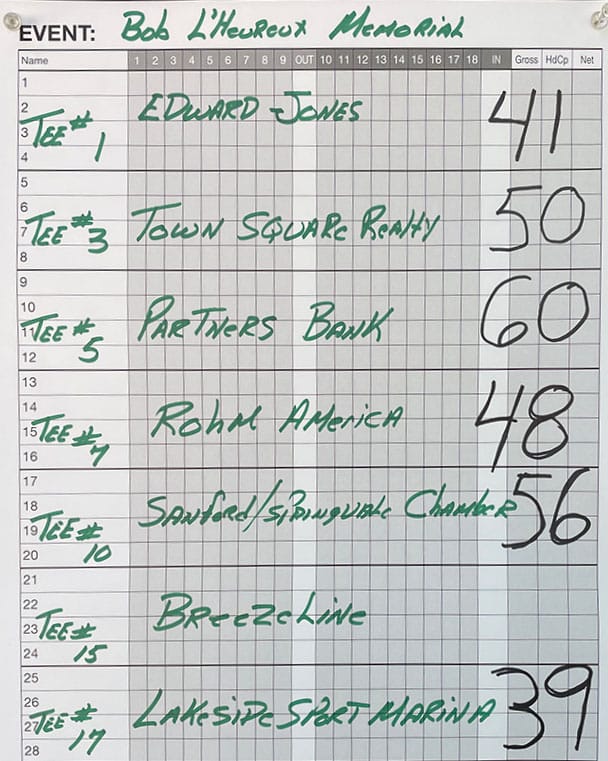 EVENT: Bob L'Heureux Memorial
Name 1 2 3 4 5 6 7 8 9 OUT 10 11 12 13 14 15 16 17 18 IN Gross HdCp Net
1
2 EDWARD JONES 41
3 TEE #1
4
5
6
7 TEE #3 TOWN SQUARE Realty 50
8
9
10
11 TEE #5 PARTNERS BANK 60
12
13
14 Rohm America 48
15 TEE #7
16
17
18 SANford/SPRINGVALE Chamber 56
19 TEE #10
20
21
22 BreezeLine
23 TEE #15
24
25
26 LAKESIDE SPORT MARINA 39
27 TEE #17
28